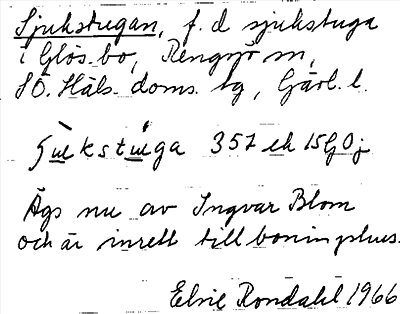 Sjukstugan, f. d sjukstuga
i Glös. bo, Rengsjö sn,
SÖ. Häls. doms. sg, Gävl. l.
sjukstuga 357 ek 15G0j
Ägs nu av Ingvar Blom
och är inrett till bonin
Elvie Rondahl 1966